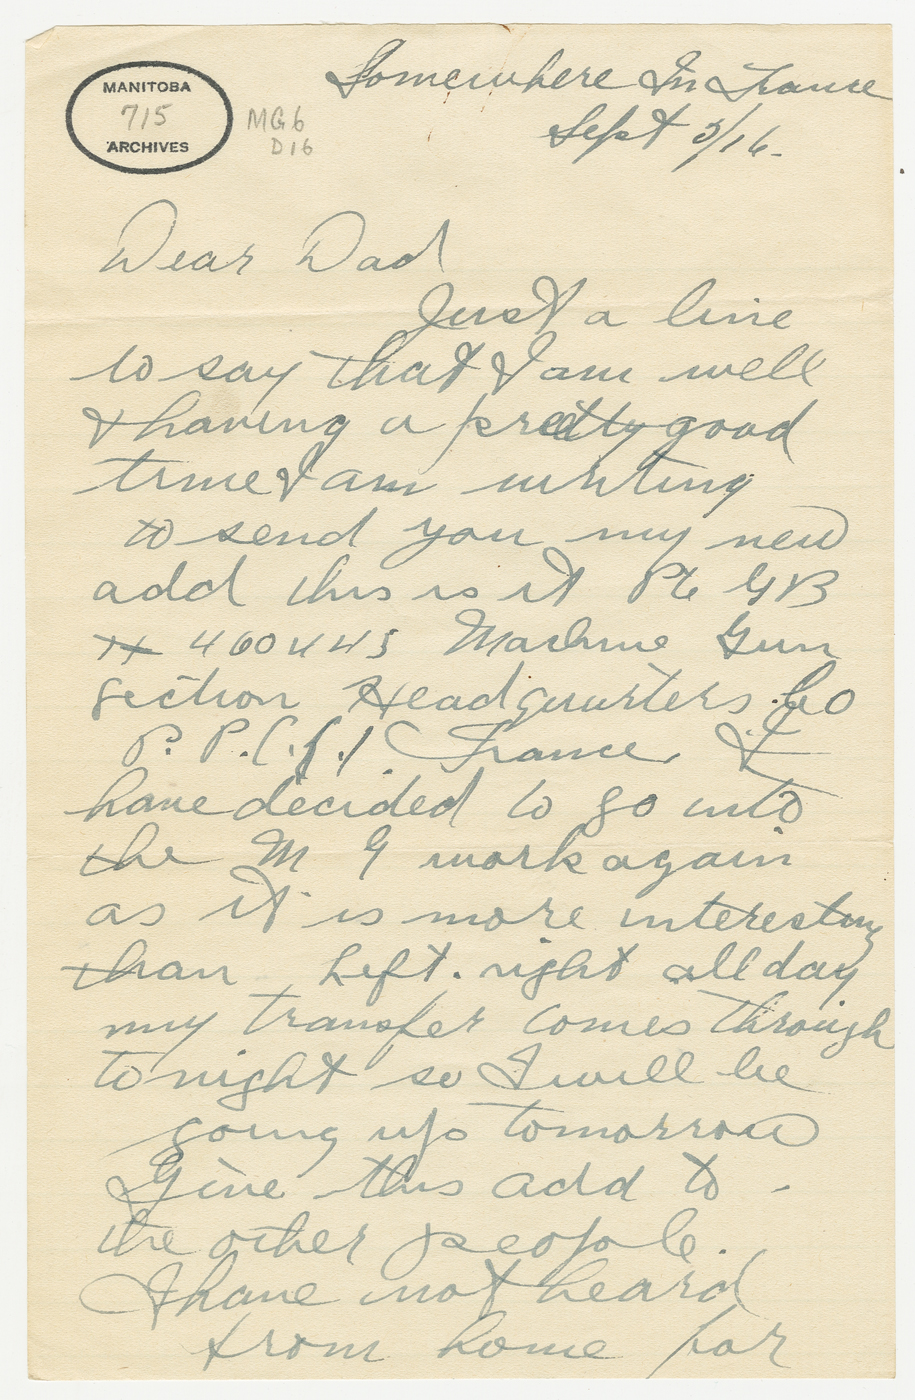 MANITOBA
715
ARCHIVES
MG6
D16
Somewhere In France
Sept 5/16.
Dear Dad
Just a line
to say that I am well
& having a pretty good
time I am writing
to send you my new
add this is it Pte GB
# 460445 Machine Gun
Section Headquarters Co
P. P. C. L. I. France, I
have decided to go into
the M G work again
as it is more interesting
than Left. right all day
my transfer comes through
tonight so I will be
going up tomorrow
Give this add to -
the other people.
I have not heard
from home for